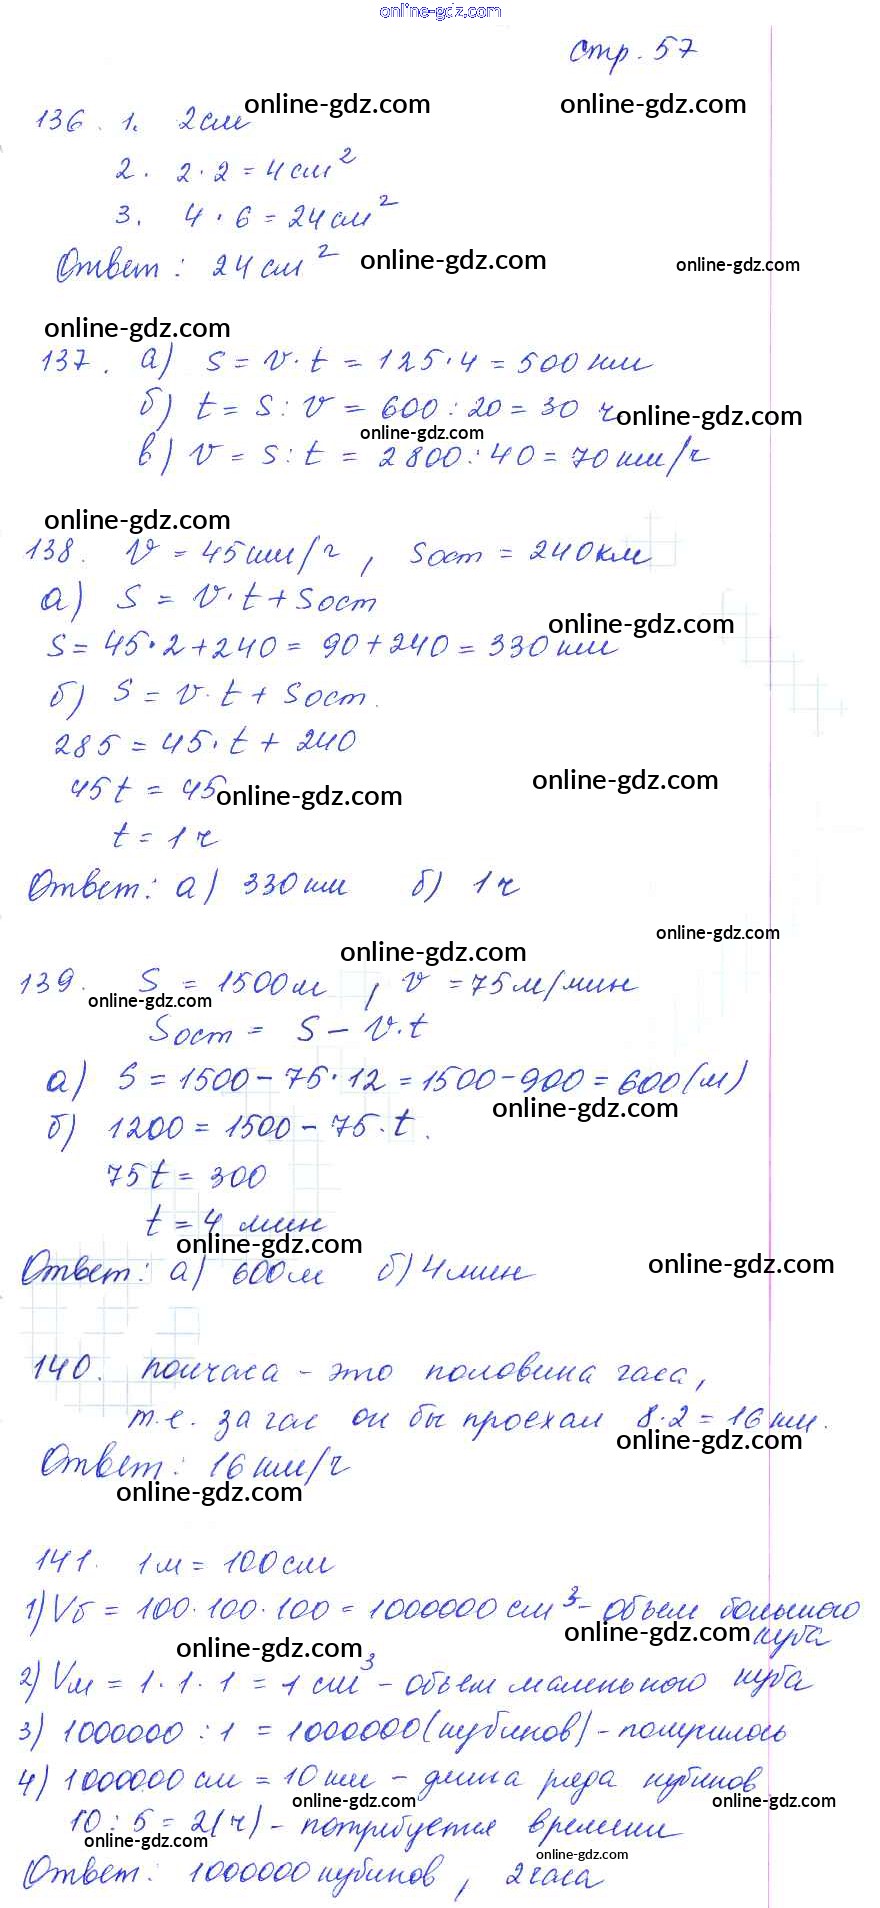 online-gdz.com
стр. 57
online-gdz.com online-gdz.com
136. 1. 2см
2. 2·2=4см²
3. 4·6=24см²
Ответ: 24см² online-gdz.com online-gdz.com
online-gdz.com
137. а) S=v·t=125·4=500км
б) t=S:v=600:20=30 ч online-gdz.com
online-gdz.com
в) v=S:t=2800:40=70км/ч
online-gdz.com
138. v=45км/ч, Sост=240км
а) S=v·t+Sост
online-gdz.com
S=45·2+240=90+240=330км
б) S=v·t+Sост.
285=45·t+240
45t=45 online-gdz.com online-gdz.com
t=1ч
Ответ: а) 330км б) 1ч
online-gdz.com
online-gdz.com
139. S=1500м, v=75м/мин
online-gdz.com
Sост=S-v·t
а) S=1500-75·12=1500-900=600(м)
online-gdz.com
б) 1200=1500-75·t.
75t=300
t=4 мин
online-gdz.com
Ответ: а) 600м б) 4мин online-gdz.com
140. полчаса - это половина часа,
т.е. за час он бы проехал 8·2=16км.
online-gdz.com
Ответ: 16км/ч
online-gdz.com
141. 1м=100см
1) Vб=100·100·100=1000000см³- объем большого
online-gdz.com куба
online-gdz.com
2) Vм=1·1·1=1см³- объем маленького куба
3) 1000000:1=1000000(кубиков)-получилось
4) 1000000см=10км - длина ряда кубиков
online-gdz.com online-gdz.com
10:5=2(ч)- потребуется времени
online-gdz.com online-gdz.com
Ответ: 1000000кубиков, 2часа